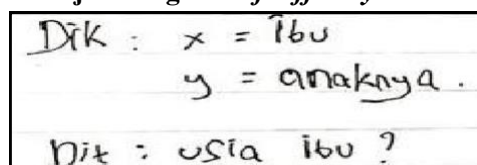 Dik : x = Ibu
y = anaknya.
Dit : usia ibu ?